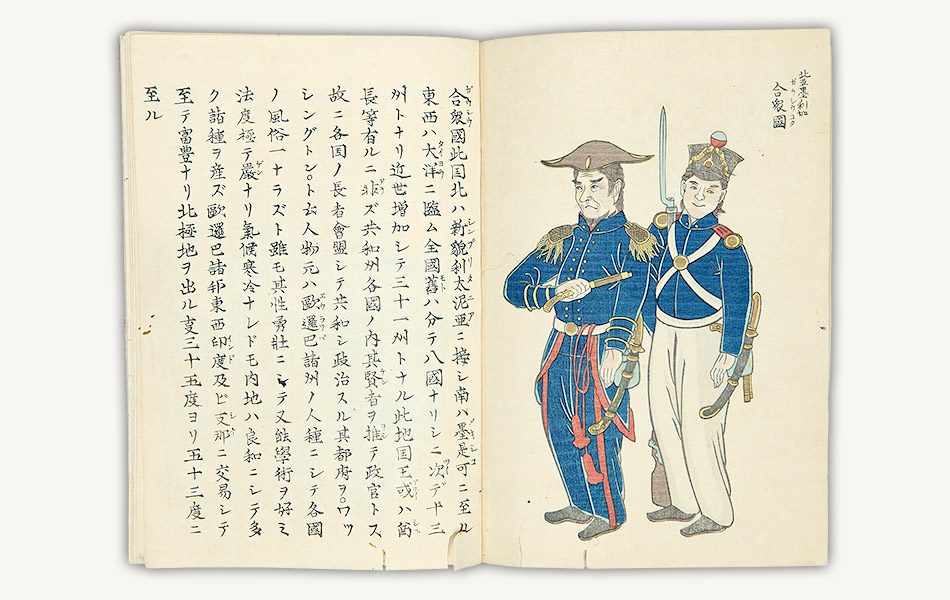 北亜墨利加
合衆國
合衆國此国北ハ新貌利太泥亜ニ接シ南ハ墨是可ニ至ル
東西ハ大洋ニ臨ム全國舊ハ分テ八國ナリシニ次デ十三
州トナリ近世増加シテ三十一州トナル此地国王或ハ酋
長等有ルニ非ズ共和州各國ノ内其賢者ヲ推テ政官トス
故ニ各国ノ長者會盟シテ共和シ政治スル其都府ヲワツ
シングトント云人物元ハ歐邏巴諸州ノ人種ニシテ各國
ノ風俗一ナラズト雖モ其性勇壯ニシテ又能學術ヲ好ミ
法度極テ嚴ナリ氣候寒冷ナレドモ内地ハ良和ニシテ多
ク諸種ヲ産ズ歐邏巴諸邦東西印度及ビ支那ニ交易シテ
至テ富豊ナリ北極地ヲ出ル事三十五度ヨリ五十三度ニ
至ル